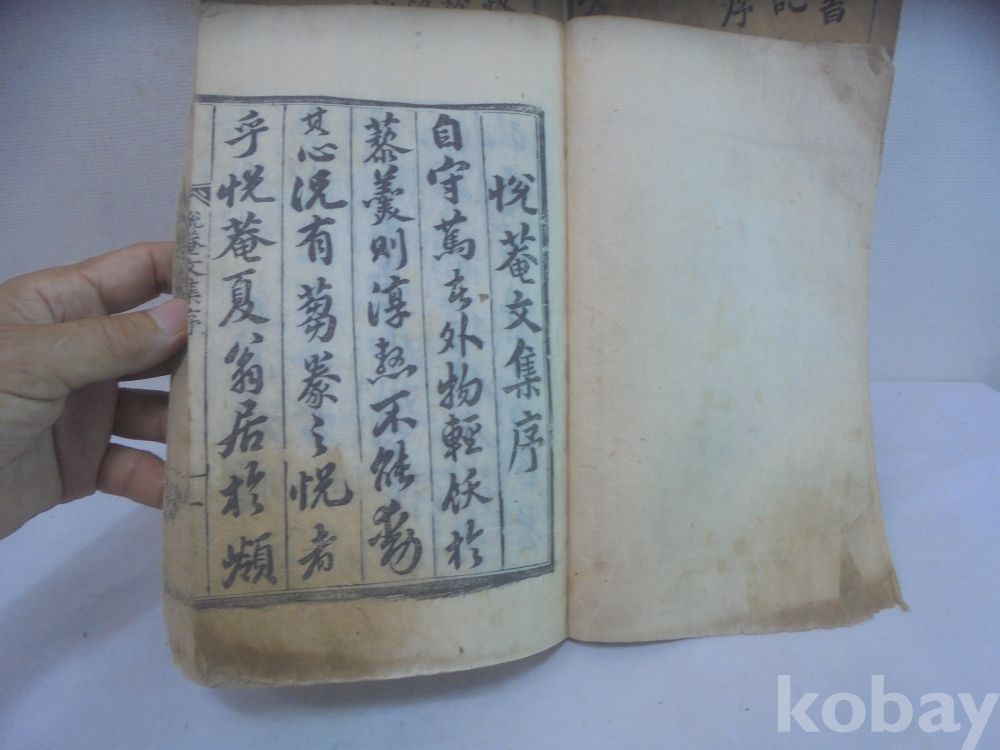 悅菴文集序
自守篤者外物輕飫於
藜羹則淳熬不能動
其心況有芻豢之悅者
乎悅菴夏翁居於
悅菴文集序
序
kobay